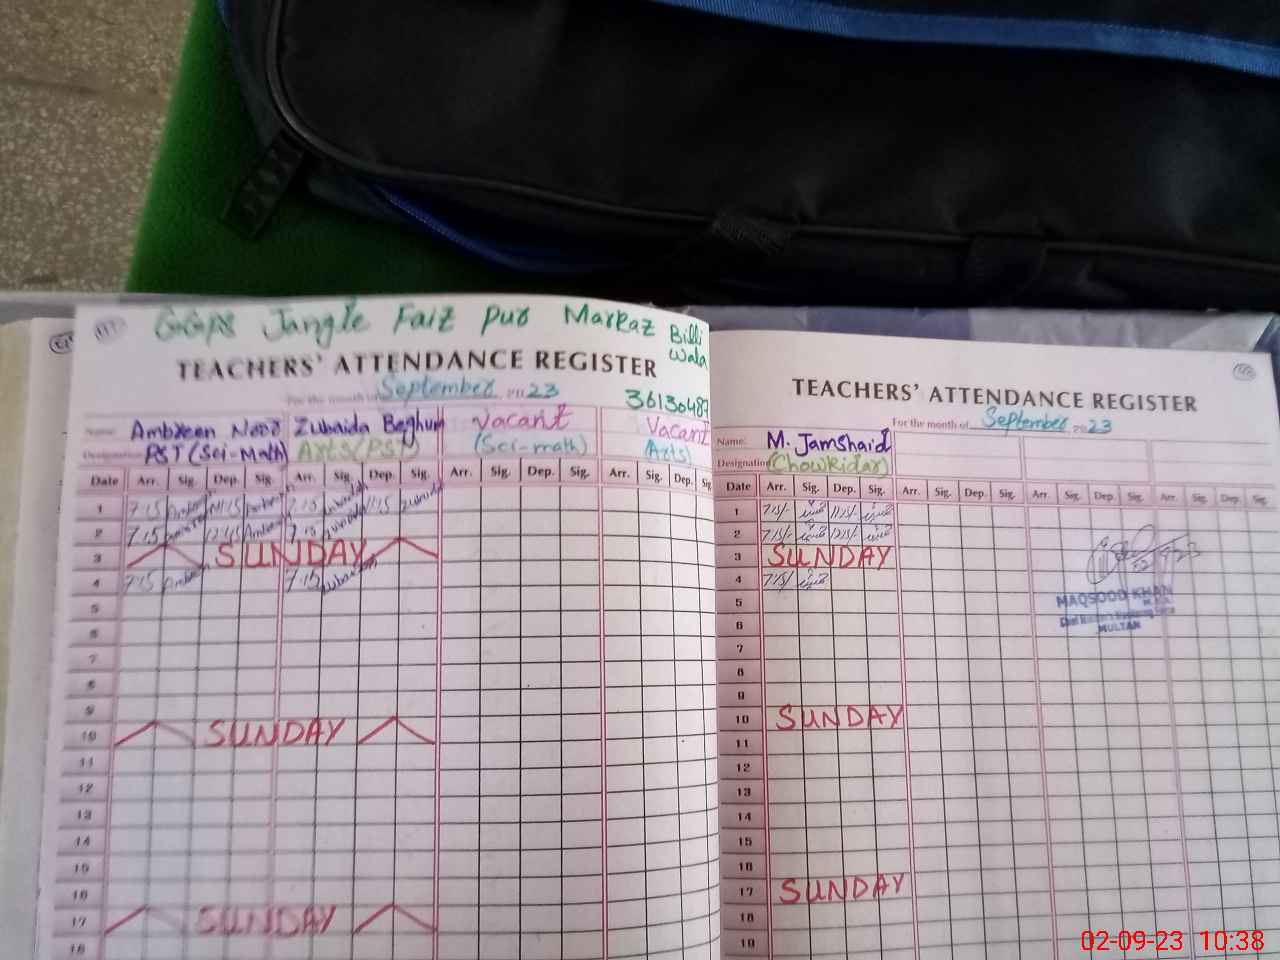 GGPS Jangle Faiz pur Markaz Billi wala
TEACHERS' ATTENDANCE REGISTER
For the month of September 2023
36130487
Name: Ambreen Noor Zubaida Beghum Vacant Vacant
Designation PST (Sci-Math) Arts (PST) (Sci-math) (Arts)
Date Arr. Sig. Dep. Sig. Arr. Sig. Dep. Sig. Arr. Sig. Dep. Sig. Arr. Sig. Dep. Sig.
1 7:15 11:15 7:15 11:15
2 7:15 12:45 7:15
3 SUNDAY
4 7:15 7:15
5
6
7
8
9
10 SUNDAY
11
12
13
14
15
16
17 SUNDAY
18
TEACHERS' ATTENDANCE REGISTER
For the month of September 2023
Name: M. Jamshaid
Designation (Chowkidar)
Date Arr. Sig. Dep. Sig. Arr. Sig. Dep. Sig. Arr. Sig. Dep. Sig. Arr. Sig. Dep. Sig.
1 7:15/-
2 7:15/-
3 SUNDAY
4 7:15/-
5
6
7
8
9
10 SUNDAY
11
12
13
14
15
16
17 SUNDAY
18
19
MAQSOOD KHAN
MULTAN
02-09-23 10:38